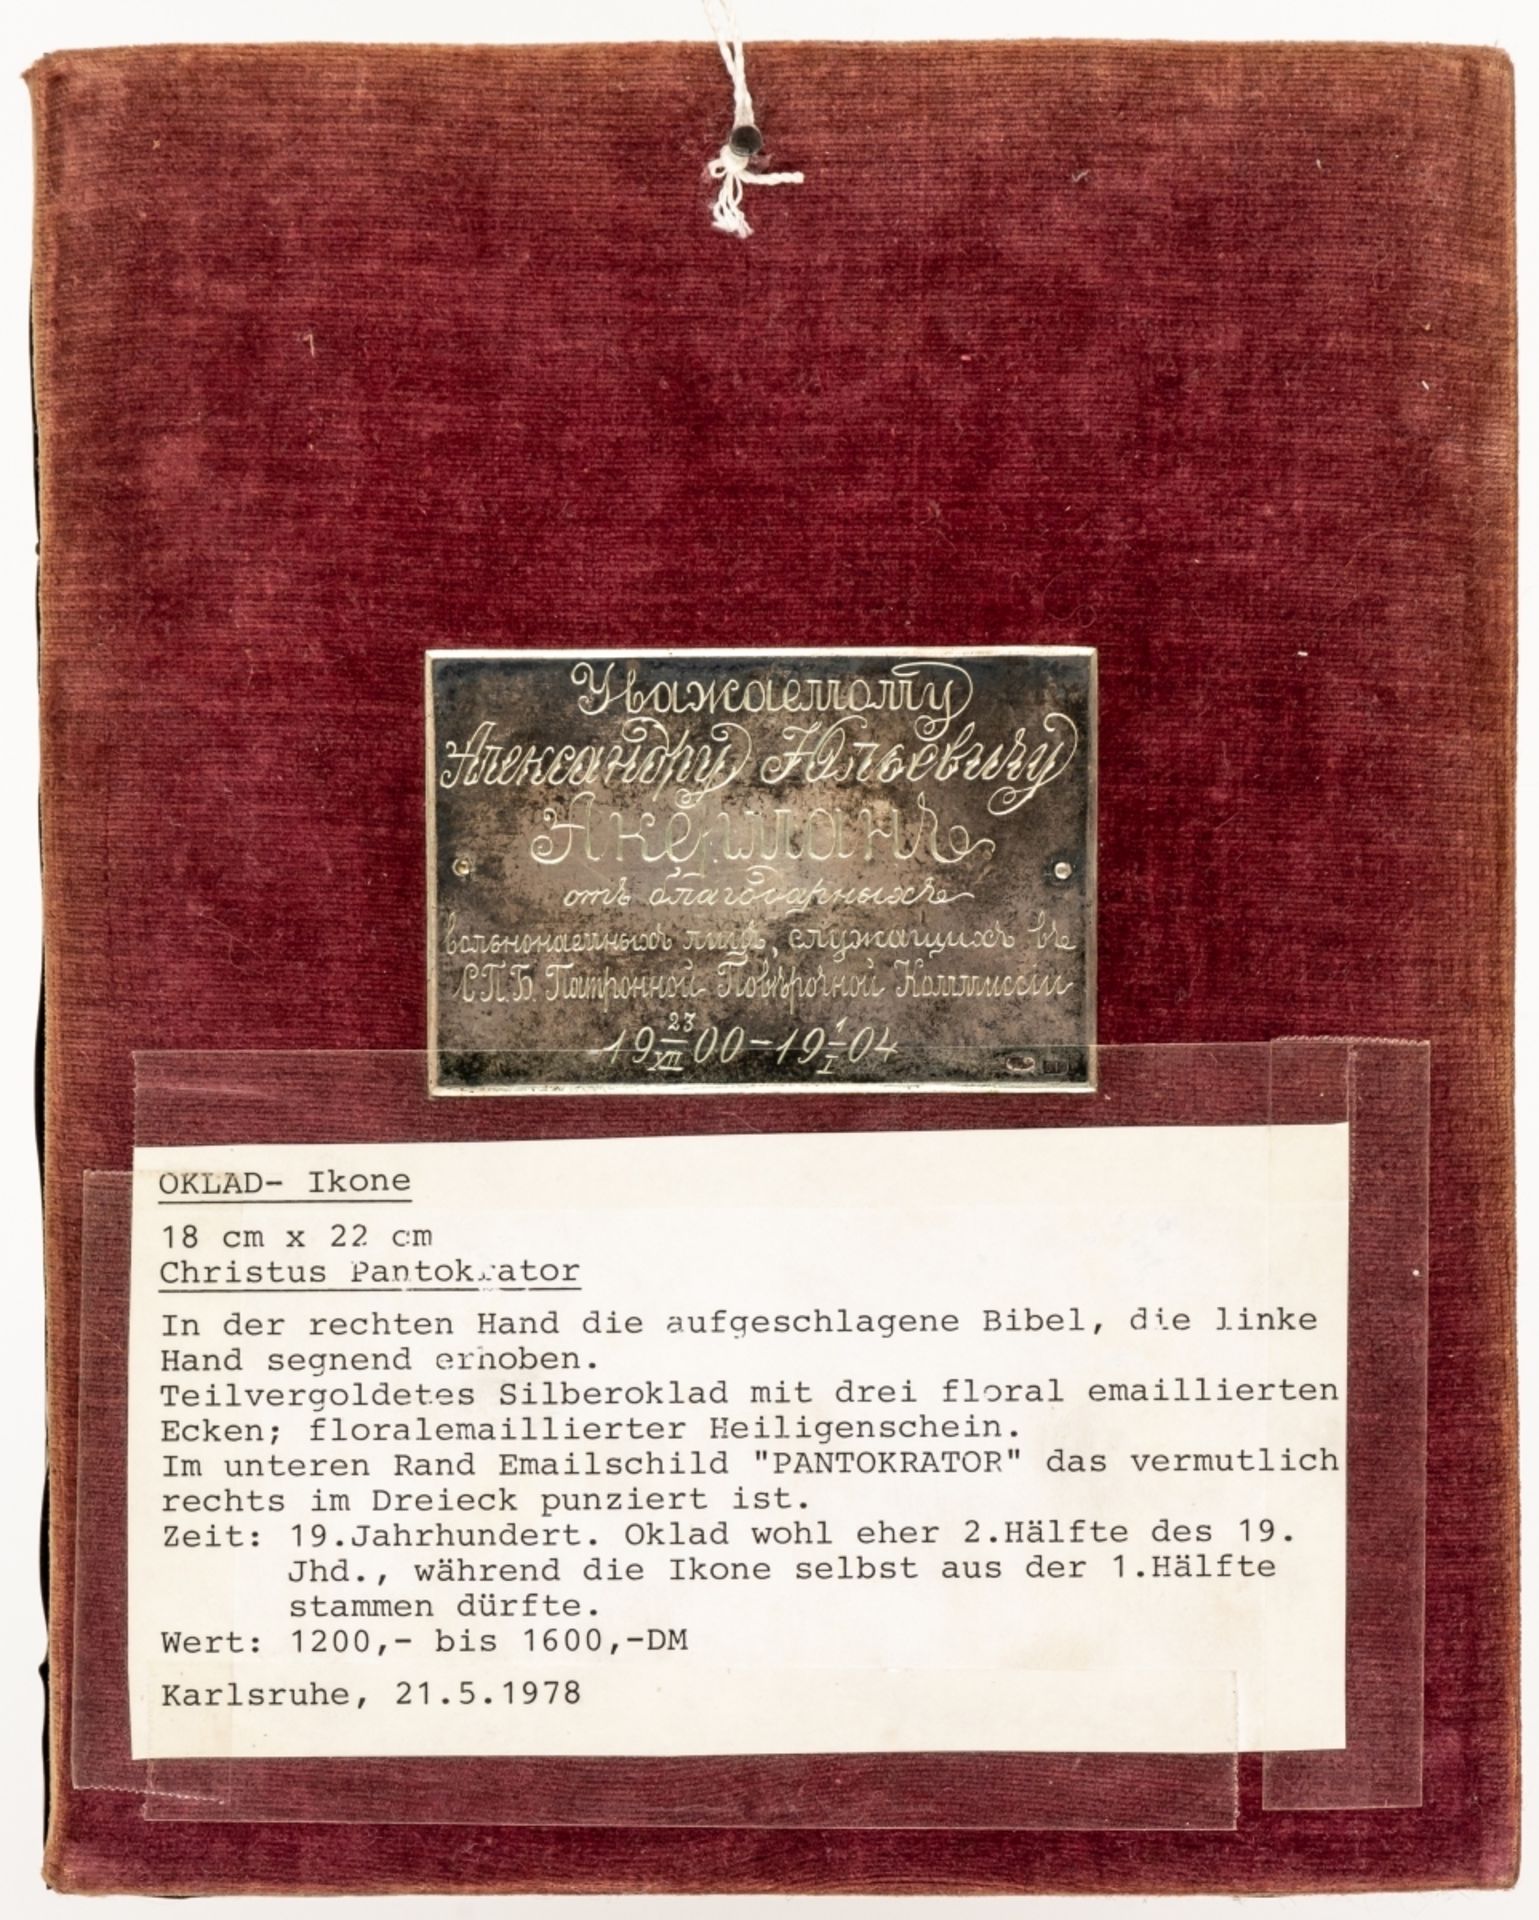 Уважаемому
Александру Юльевичу
Акерманъ
отъ благодарныхъ
вольнонаемныхъ лицъ, служащихъ въ
С.П.Б. Патронной Повѣрочной Коммиссіи
19 23/XII 00 – 19 1/I 04
OKLAD- Ikone
18 cm x 22 cm
Christus Pantokrator
In der rechten Hand die aufgeschlagene Bibel, die linke
Hand segnend erhoben.
Teilvergoldetes Silberoklad mit drei floral emaillierten
Ecken; floralemaillierter Heiligenschein.
Im unteren Rand Emailschild "PANTOKRATOR" das vermutlich
rechts im Dreieck punziert ist.
Zeit: 19.Jahrhundert. Oklad wohl eher 2.Hälfte des 19.
Jhd., während die Ikone selbst aus der 1.Hälfte
stammen dürfte.
Wert: 1200,- bis 1600,-DM
Karlsruhe, 21.5.1978